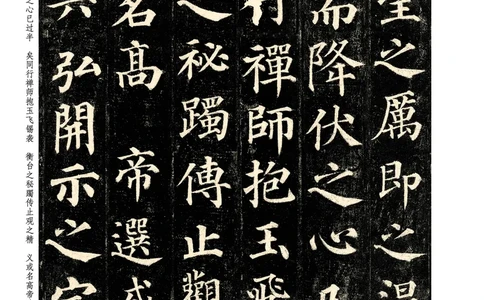 望之厲即之温
而降伏之心已
行禪師抱玉飛
之祕躅傳止觀
名高 帝選或
共弘開示之宗
之心已过半 矣同行禅师抱玉飞锡袭 衡台之秘躅传止观之精 义或名高帝